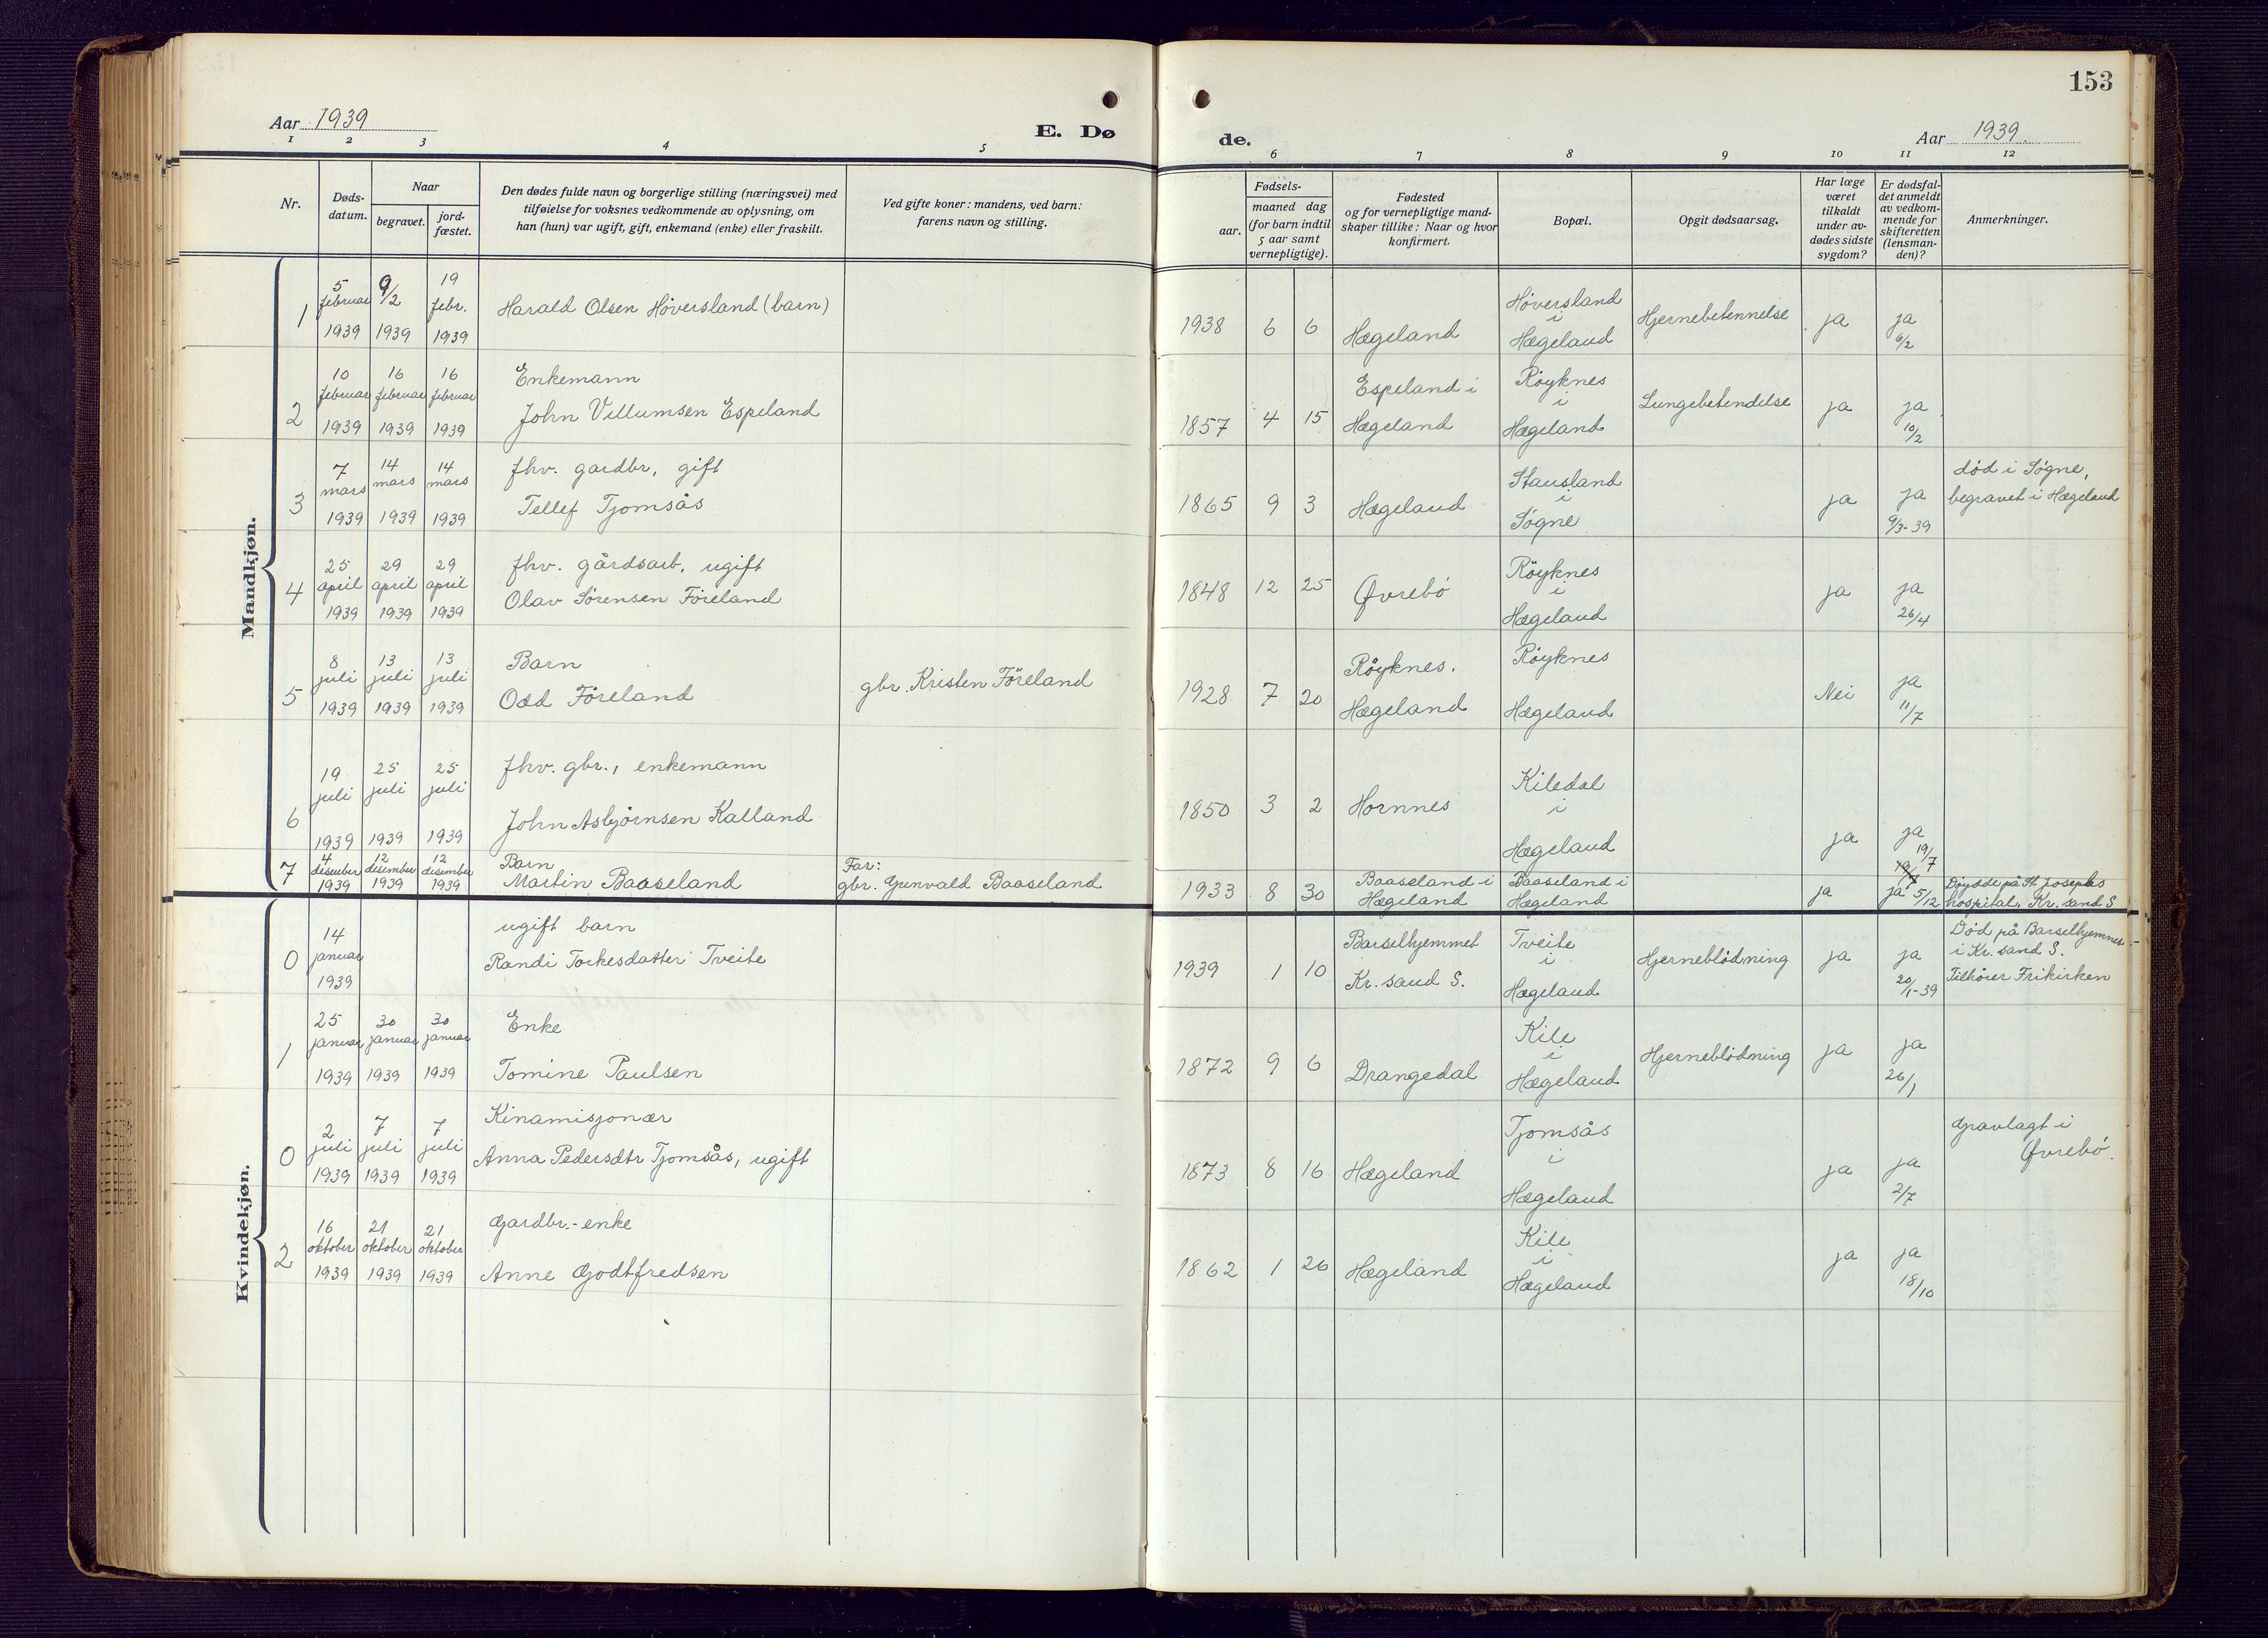 153
Aar 1939
E. Dø
de.
Aar 1939.
1 2 3 4 5
6 7 8 9 10 11 12
Nr.
Døds-
datum.
Naar
begravet.
jord-
fæstet.
Den dødes fulde navn og borgerlige stilling (næringsvei) med
tilføielse for voksnes vedkommende av oplysning, om
han (hun) var ugift, gift, enkemand (enke) eller fraskilt.
Ved gifte koner: mandens, ved barn:
farens navn og stilling.
Fødsels-
aar.
maaned dag
(for barn indtil
5 aar samt
vernepligtige).
Fødested
og for vernepligtige mand-
skaper tillike: Naar og hvor
konfirmert.
Bopæl.
Opgit dødsaarsag.
Har læge
været
tilkaldt
under av-
dødes sidste
sygdom?
Er dødsfal-
det anmeldt
av vedkom-
mende for
skifteretten
(lensman-
den)?
Anmerkninger.
Mandkjøn.
1
5
februar
1939
9/2
1939
19
febr.
1939
Harald Olsen Höversland (barn)
1938 6 6
Hægeland
Höversland
i
Hægeland
Hjernebetennelse
ja
ja
6/2
2
10
februar
1939
16
februar
1939
16
februar
1939
Enkemann
John Villumsen Espeland
1857 4 15
Espeland i
Hægeland
Röyknes
i
Hægeland
Lungebetendelse
ja
ja
10/2
3
7
mars
1939
14
mars
1939
14
mars
1939
fhv. gardbr, gift
Tellef Tjomsås
1865 9 3
Hægeland
Stausland
i
Søgne
ja
ja
9/3-39
död i Søgne,
begravet i Hægeland
4
25
april
1939
29
april
1939
29
april
1939
fhv. gårdsarb, ugift
Olav Sörensen Föreland
1848 12 25
Øvrebö
Röyknes
i
Hægeland
ja
ja
26/4
5
8
juli
1939
13
juli
1939
13
juli
1939
Barn
Odd Föreland
gbr. Kristen Föreland
1928 7 20
Röyknes.
Hægeland
Röyknes
Hægeland
Nei
ja
11/7
6
19
juli
1939
25
juli
1939
25
juli
1939
fhv. gbr., enkemann
John Asbjörnsen Kalland
1850 3 2
Hornnes
Kiledal
i
Hægeland
ja
ja
19/7
7
4
desember
1939
12
desember
1939
12
desember
1939
Barn
Martin Baaseland
Far:
gbr. Gunvald Baaseland
1933 8 30
Baaseland i
Hægeland
Baaseland i
Hægeland
ja
ja 5/12
Döydde på St. Josephs
hospital, Kr. sand S
Kvindekjøn.
0
14
januar
1939
ugift barn
Randi Torkesdatter Tveite
1939 1 10
Barselhjemmet
Kr. sand S.
Tveite
i
Hægeland
Hjerneblödning
ja
ja
20/1-39
Död på Barselhjemmet
i Kr. sand S.
Tilhörer Frikirken
1
25
januar
1939
30
januar
1939
30
januar
1939
Enke
Tomine Paulsen
1872 9 6
Drangedal
Kile
i
Hægeland
Hjerneblödning
ja
ja
26/1
0
2
juli
1939
7
juli
1939
7
juli
1939
Kinamisjonær
Anna Pedersdtr Tjomsås, ugift
1873 8 16
Hægeland
Tjomsås
i
Hægeland
ja
ja
2/7
gravlagt i
Øvrebö.
2
16
oktober
1939
21
oktober
1939
21
oktober
1939
Gardbr.-enke
Anne Godtfredsen
1862 1 26
Hægeland
Kile
i
Hægeland
ja
ja
18/10